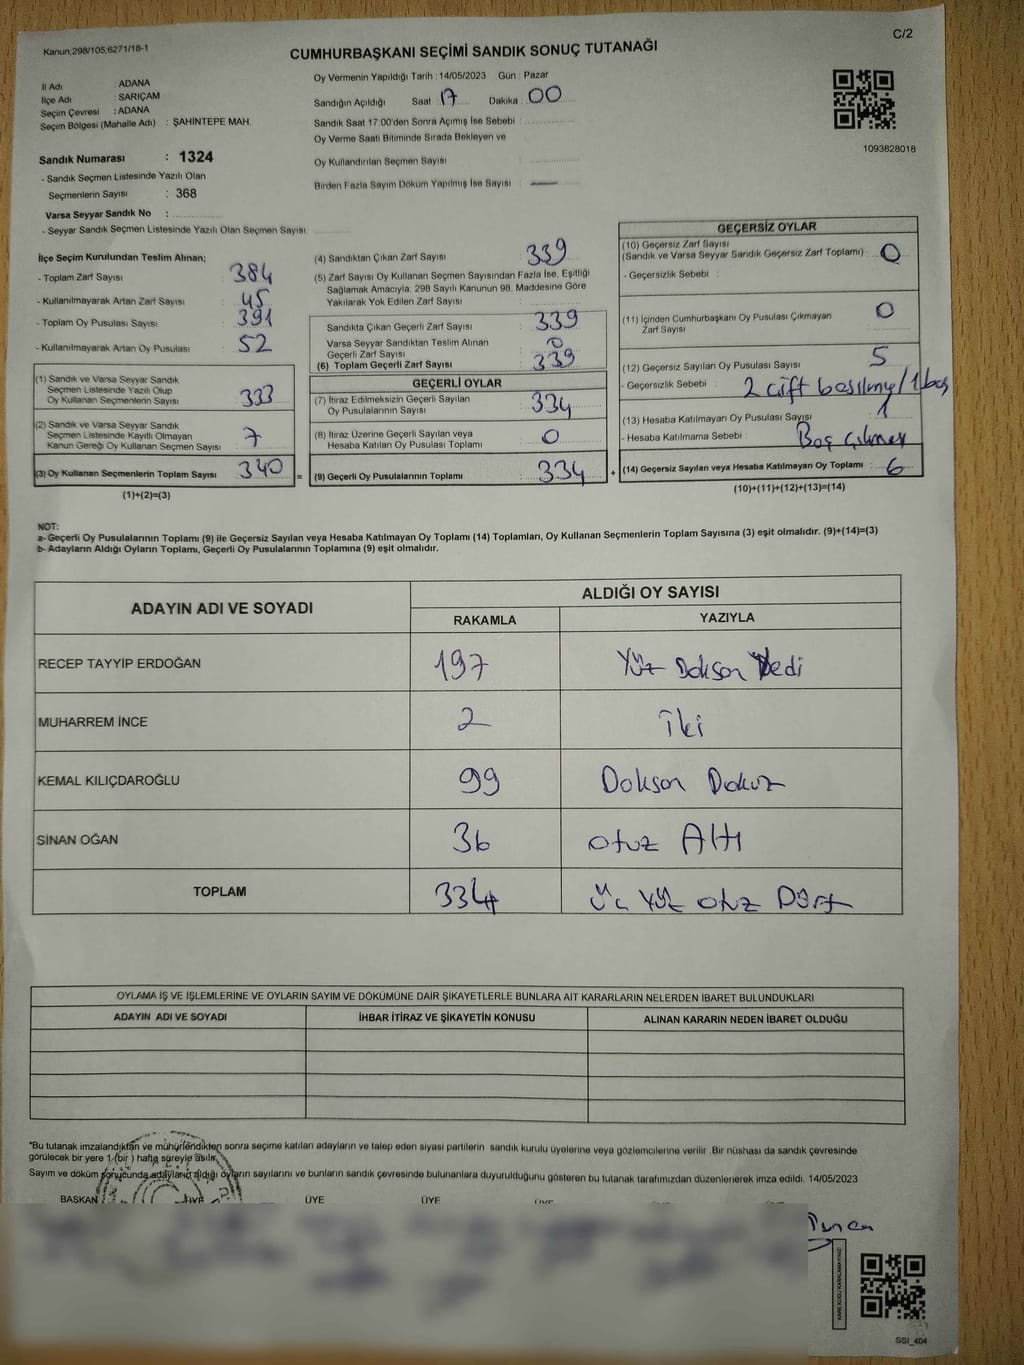 Kanun;298/105,6271/18-1
C/2
CUMHURBAŞKANI SEÇİMİ SANDIK SONUÇ TUTANAĞI
İl Adı : ADANA
İlçe Adı : SARIÇAM
Seçim Çevresi : ADANA
Seçim Bölgesi (Mahalle Adı) : ŞAHİNTEPE MAH.
Sandık Numarası : 1324
- Sandık Seçmen Listesinde Yazılı Olan
Seçmenlerin Sayısı : 368
Varsa Seyyar Sandık No :
- Seyyar Sandık Seçmen Listesinde Yazılı Olan Seçmen Sayısı:
Oy Vermenin Yapıldığı Tarih :14/05/2023 Gün : Pazar
Sandığın Açıldığı Saat : 17 Dakika : 00
Sandık Saat 17:00'den Sonra Açımış İse Sebebi :
Oy Verme Saati Bitiminde Sırada Bekleyen ve
Oy Kullandırılan Seçmen Sayısı
Birden Fazla Sayım Döküm Yapılmış İse Sayısı : —
1093828018
İlçe Seçim Kurulundan Teslim Alınan;
- Toplam Zarf Sayısı : 384
- Kullanılmayarak Artan Zarf Sayısı : 45
- Toplam Oy Pusulası Sayısı : 391
- Kullanılmayarak Artan Oy Pusulası : 52
(1) Sandık ve Varsa Seyyar Sandık
Seçmen Listesinde Yazılı Olup
Oy Kullanan Seçmenlerin Sayısı : 333
(2) Sandık ve Varsa Seyyar Sandık
Seçmen Listesinde Kayıtlı Olmayan
Kanun Gereği Oy Kullanan Seçmen Sayısı : 7
(3) Oy Kullanan Seçmenlerin Toplam Sayısı : 340
(1)+(2)=(3)
=
(4) Sandıktan Çıkan Zarf Sayısı : 339
(5) Zarf Sayısı Oy Kullanan Seçmen Sayısından Fazla İse, Eşitliği
Sağlamak Amacıyla; 298 Sayılı Kanunun 98. Maddesine Göre
Yakılarak Yok Edilen Zarf Sayısı :
Sandıkta Çıkan Geçerli Zarf Sayısı : 339
Varsa Seyyar Sandıktan Teslim Alınan
Geçerli Zarf Sayısı : 0
(6) Toplam Geçerli Zarf Sayısı : 339
GEÇERLİ OYLAR
(7) İtiraz Edilmeksizin Geçerli Sayılan
Oy Pusulalarının Sayısı : 334
(8) İtiraz Üzerine Geçerli Sayılan veya
Hesaba Katılan Oy Pusulası Toplamı : 0
(9) Geçerli Oy Pusulalarının Toplamı : 334
+
GEÇERSİZ OYLAR
(10) Geçersiz Zarf Sayısı
(Sandık ve Varsa Seyyar Sandık Geçersiz Zarf Toplamı) : 0
- Geçersizlik Sebebi :
(11) İçinden Cumhurbaşkanı Oy Pusulası Çıkmayan
Zarf Sayısı : 0
(12) Geçersiz Sayılan Oy Pusulası Sayısı : 5
- Geçersizlik Sebebi : 2 çift basılmış/1 boş
(13) Hesaba Katılmayan Oy Pusulası Sayısı : 1
- Hesaba Katılmama Sebebi : Boş
(14) Geçersiz Sayılan veya Hesaba Katılmayan Oy Toplamı : 6
(10)+(11)+(12)+(13)=(14)
NOT:
a- Geçerli Oy Pusulalarının Toplamı (9) ile Geçersiz Sayılan veya Hesaba Katılmayan Oy Toplamı (14) Toplamları, Oy Kullanan Seçmenlerin Toplam Sayısına (3) eşit olmalıdır. (9)+(14)=(3)
b- Adayların Aldığı Oyların Toplamı, Geçerli Oy Pusulalarının Toplamına (9) eşit olmalıdır.
ADAYIN ADI VE SOYADI
ALDIĞI OY SAYISI
RAKAMLA YAZIYLA
RECEP TAYYİP ERDOĞAN 197 Yüz Doksan Yedi
MUHARREM İNCE 2 İki
KEMAL KILIÇDAROĞLU 99 Doksan Dokuz
SİNAN OĞAN 36 Otuz Altı
TOPLAM 334 Üç Yüz Otuz Dört
OYLAMA İŞ VE İŞLEMLERİNE VE OYLARIN SAYIM VE DÖKÜMÜNE DAİR ŞİKAYETLERLE BUNLARA AİT KARARLARIN NELERDEN İBARET BULUNDUKLARI
ADAYIN ADI VE SOYADI İHBAR İTİRAZ VE ŞİKAYETİN KONUSU ALINAN KARARIN NEDEN İBARET OLDUĞU
*Bu tutanak imzalandıktan ve mühürlendikten sonra seçime katılan adayların ve talep eden siyasi partilerin sandık kurulu üyelerine veya gözlemcilerine verilir. Bir nüshası da sandık çevresinde
görülecek bir yere 1 (bir) hafta süreyle asılır.
Sayım ve döküm sonucunda adayların aldığı oyların sayılarını ve bunların sandık çevresinde bulunanlara duyurulduğunu gösteren bu tutanak tarafımızdan düzenlenerek imza edildi. 14/05/2023
BAŞKAN ÜYE ÜYE ÜYE ÜYE
SSI_404